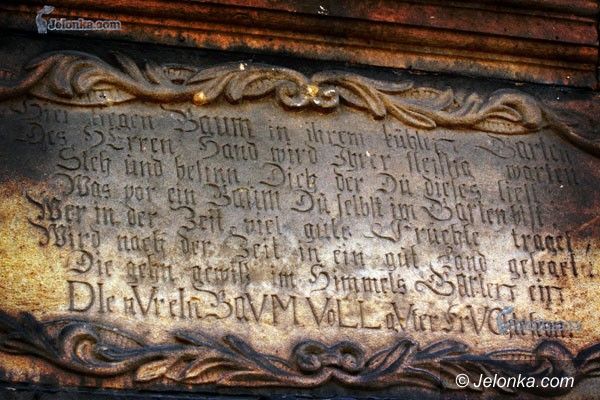 Jelonka.com
Hier liegen Baum in ihrem kühlen Garten
Des HErren Hand wird Ihrer fleisig warten
Sieh und besinn Dich der Du dieses liest
Was vor ein Baum Du selbst im Garten bist
Wer in der Zeit viel gute Fruchte traget
Wird nach der Zeit in ein gut Land geleget
Die gehn gewiß im Himmels Garten ein
DIe nVr eIn BaVM VoLL gVter FrVChte
© Jelonka.com